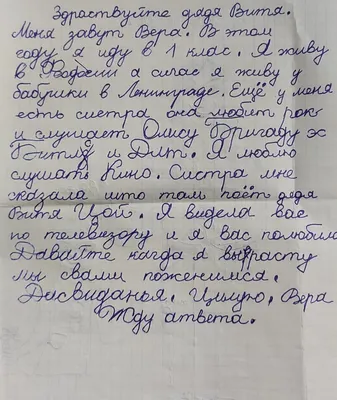 Здраствуйте дядя Витя.
Меня завут Вера. В этом
году я иду в 1 клас. Я живу
в Феодосии а сичас я живу у
бабушки в Ленинграде. Ещё у меня
есть систра она любит рок
и слушает Алису Бригаду эс
Битлз и Дпт. Я люблю
слушать Кино. Систра мне
сказала што там поёт дядя
Витя Цой. Я видела вас
по телевизору и я вас полюбила
Давайте кагда я вырасту
мы свами поженимся.
Дасвиданья. Цылую, Вера
Жду атвета.